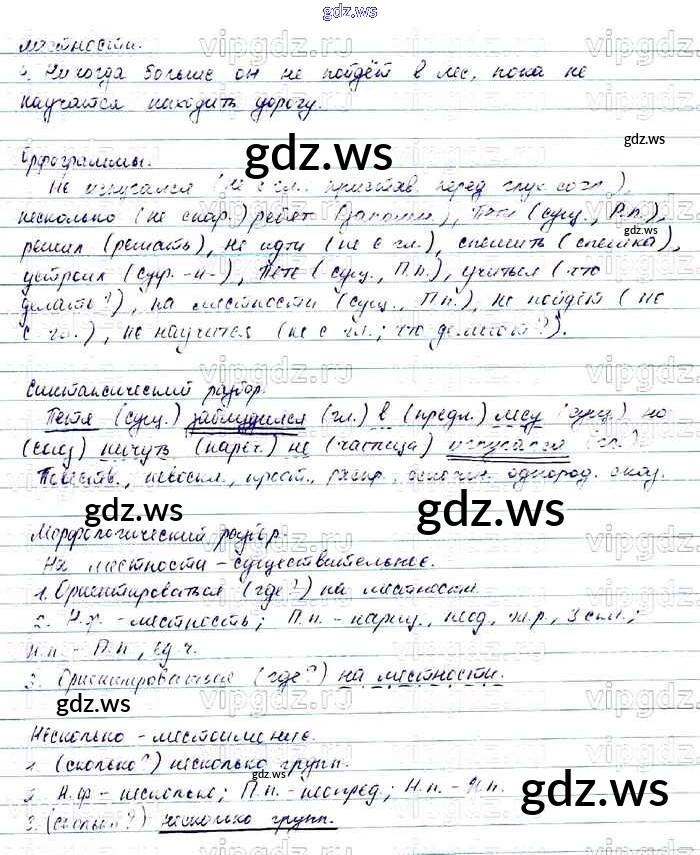 gdz.ws
местности.
4. Никогда больше он не пойдёт в лес, пока не
научится находить дорогу.
Орфограммы.
Не испугался (не с гл., пристав. перед глух. согл.),
несколько (не снар.) ребят (запомн.), Пети (сущ., Р.п.),
решил (решать), не идти (не с гл.), спешить (спешка),
устроил (суф. -и-), Пете (сущ., П.п.), учиться (что
делать?), на местности (сущ., П.п.), не пойдёт (не
с гл.), не научится (не с гл.; что делают?).
Синтаксический разбор.
Петя (сущ.) заблудился (гл.) в (предл.) лесу (сущ.) но
(союз) ничуть (нареч.) не (частица) испугался (гл.).
Повеств., невоскл., прост., распр., осложн. однород. сказ.
Морфологический разбор.
На местности – существительное.
1. Ориентироваться (где?) на местности.
2. Н.ф. – местность; П.п. – нариц., неод., ж.р., 3 скл.;
Н.п. – П.п., ед.ч.
3. Ориентироваться (где?) на местности.
Несколько – местоимение.
1. (сколько?) несколько групп.
2. Н.ф. – несколько; П.п. – неопред.; Н.п. – И.п.
3. (сколько?) несколько групп.
gdz.ws
gdz.ws
gdz.ws
gdz.ws
gdz.ws
gdz.ws
gdz.ws
gdz.ws
gdz.ws